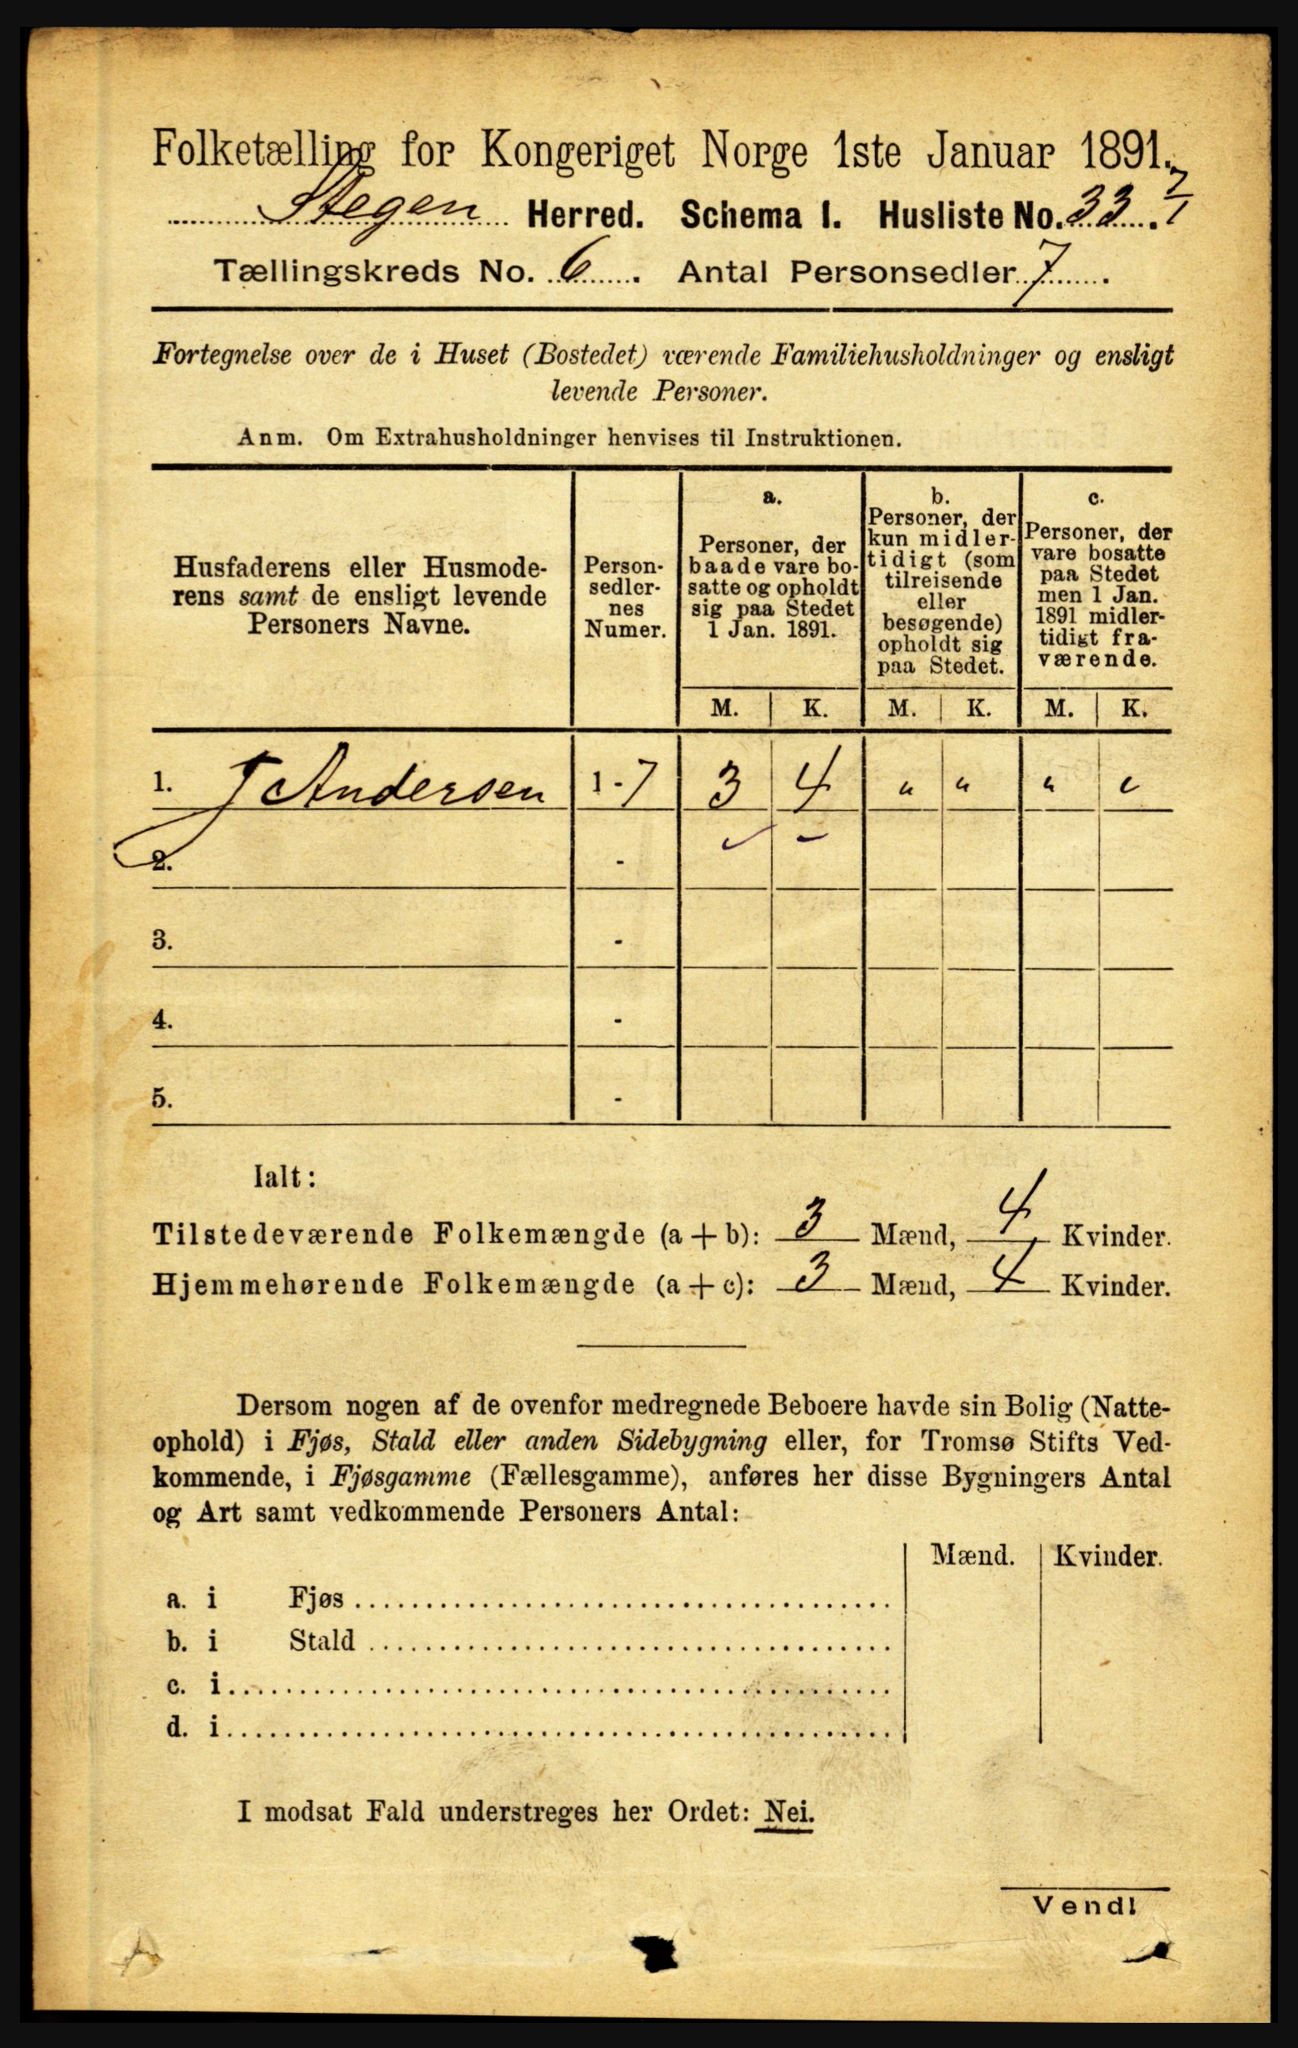 Folketælling for Kongeriget Norge 1ste Januar 1891.
Stegen Herred. Schema I. Husliste No. 33. 7/1
Tællingskreds No. 6. Antal Personsedler 7.
Fortegnelse over de i Huset (Bostedet) værende Familiehusholdninger og ensligt
levende Personer.
Anm. Om Extrahusholdninger henvises til Instruktionen.
Husfaderens eller Husmode-
rens samt de ensligt levende
Personers Navne.
Person-
sedler-
nes
Numer.
a.
Personer, der
baade vare bo-
satte og opholdt
sig paa Stedet
1 Jan. 1891.
b.
Personer, der
kun midler-
tidigt (som
tilreisende
eller
besøgende)
opholdt sig
paa Stedet.
c.
Personer, der
vare bosatte
paa Stedet
men 1 Jan.
1891 midler-
tidigt fra-
værende.
M. K. M. K. M. K.
1. J Andersen 1-7 3 4 " " " "
2. -
3. -
4. -
5. -
Ialt:
Tilstedeværende Folkemængde (a + b): 3 Mænd, 4 Kvinder.
Hjemmehørende Folkemængde (a + c): 3 Mænd, 4 Kvinder.
Dersom nogen af de ovenfor medregnede Beboere havde sin Bolig (Natte-
ophold) i Fjøs, Stald eller anden Sidebygning eller, for Tromsø Stifts Ved-
kommende, i Fjøsgamme (Fællesgamme), anføres her disse Bygningers Antal
og Art samt vedkommende Personers Antal:
Mænd. Kvinder.
a. i Fjøs
b. i Stald
c. i
d. i
I modsat Fald understreges her Ordet: Nei.
Vend!